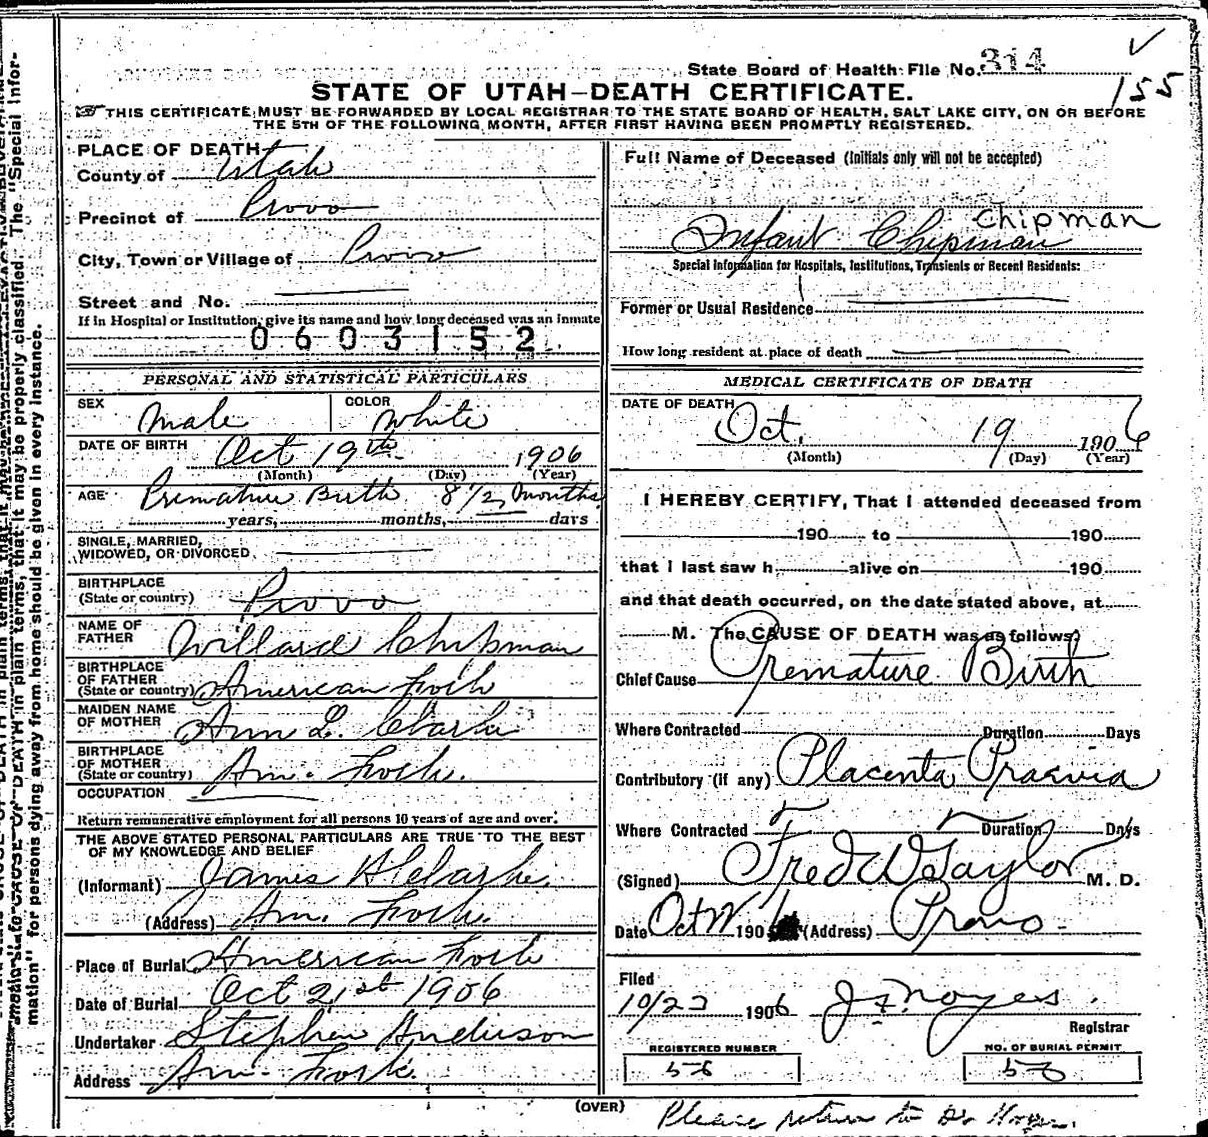 State Board of Health File No. 314
155
STATE OF UTAH—DEATH CERTIFICATE.
THIS CERTIFICATE MUST BE FORWARDED BY LOCAL REGISTRAR TO THE STATE BOARD OF HEALTH, SALT LAKE CITY, ON OR BEFORE
THE 5TH OF THE FOLLOWING MONTH, AFTER FIRST HAVING BEEN PROMPTLY REGISTERED.
PLACE OF DEATH
County of Utah
Precinct of Provo
City, Town or Village of Provo
Street and No.
If in Hospital or Institution, give its name and how long deceased was an inmate
0603152
PERSONAL AND STATISTICAL PARTICULARS
SEX Male COLOR White
DATE OF BIRTH Oct 19th 1906
(Month) (Day) (Year)
AGE Premature Birth 8 1/2 months
years, months, days
SINGLE, MARRIED,
WIDOWED, OR DIVORCED
BIRTHPLACE
(State or country) Provo
NAME OF
FATHER Willard Chipman
BIRTHPLACE
OF FATHER
(State or country) American Fork
MAIDEN NAME
OF MOTHER Ann L. Clarke
BIRTHPLACE
OF MOTHER
(State or country) Am. Fork.
OCCUPATION
Return remunerative employment for all persons 10 years of age and over.
THE ABOVE STATED PERSONAL PARTICULARS ARE TRUE TO THE BEST
OF MY KNOWLEDGE AND BELIEF
(Informant) James H Clarke.
(Address) Am. Fork.
Place of Burial American Fork
Date of Burial Oct 21st 1906
Undertaker Stephen Anderson
Address Am. Fork.
Full Name of Deceased (Initials only will not be accepted)
Chipman
Infant Chipman
Special Information for Hospitals, Institutions, Transients or Recent Residents:
Former or Usual Residence
How long resident at place of death
MEDICAL CERTIFICATE OF DEATH
DATE OF DEATH
Oct. 19 1906
(Month) (Day) (Year)
I HEREBY CERTIFY, That I attended deceased from
190 to 190
that I last saw h alive on 190
and that death occurred, on the date stated above, at
M. The CAUSE OF DEATH was as follows:
Chief Cause Premature Birth
Where Contracted Duration Days
Contributory (if any) Placenta Praevia
Where Contracted Duration Days
(Signed) Fred W Taylor M. D.
Date Oct 190 (Address) Provo
Filed
10/23 1906 Registrar
REGISTERED NUMBER
56
NO. OF BURIAL PERMIT
50
(OVER)
Please return to Dr
mation" for persons dying away from home should be given in every instance.